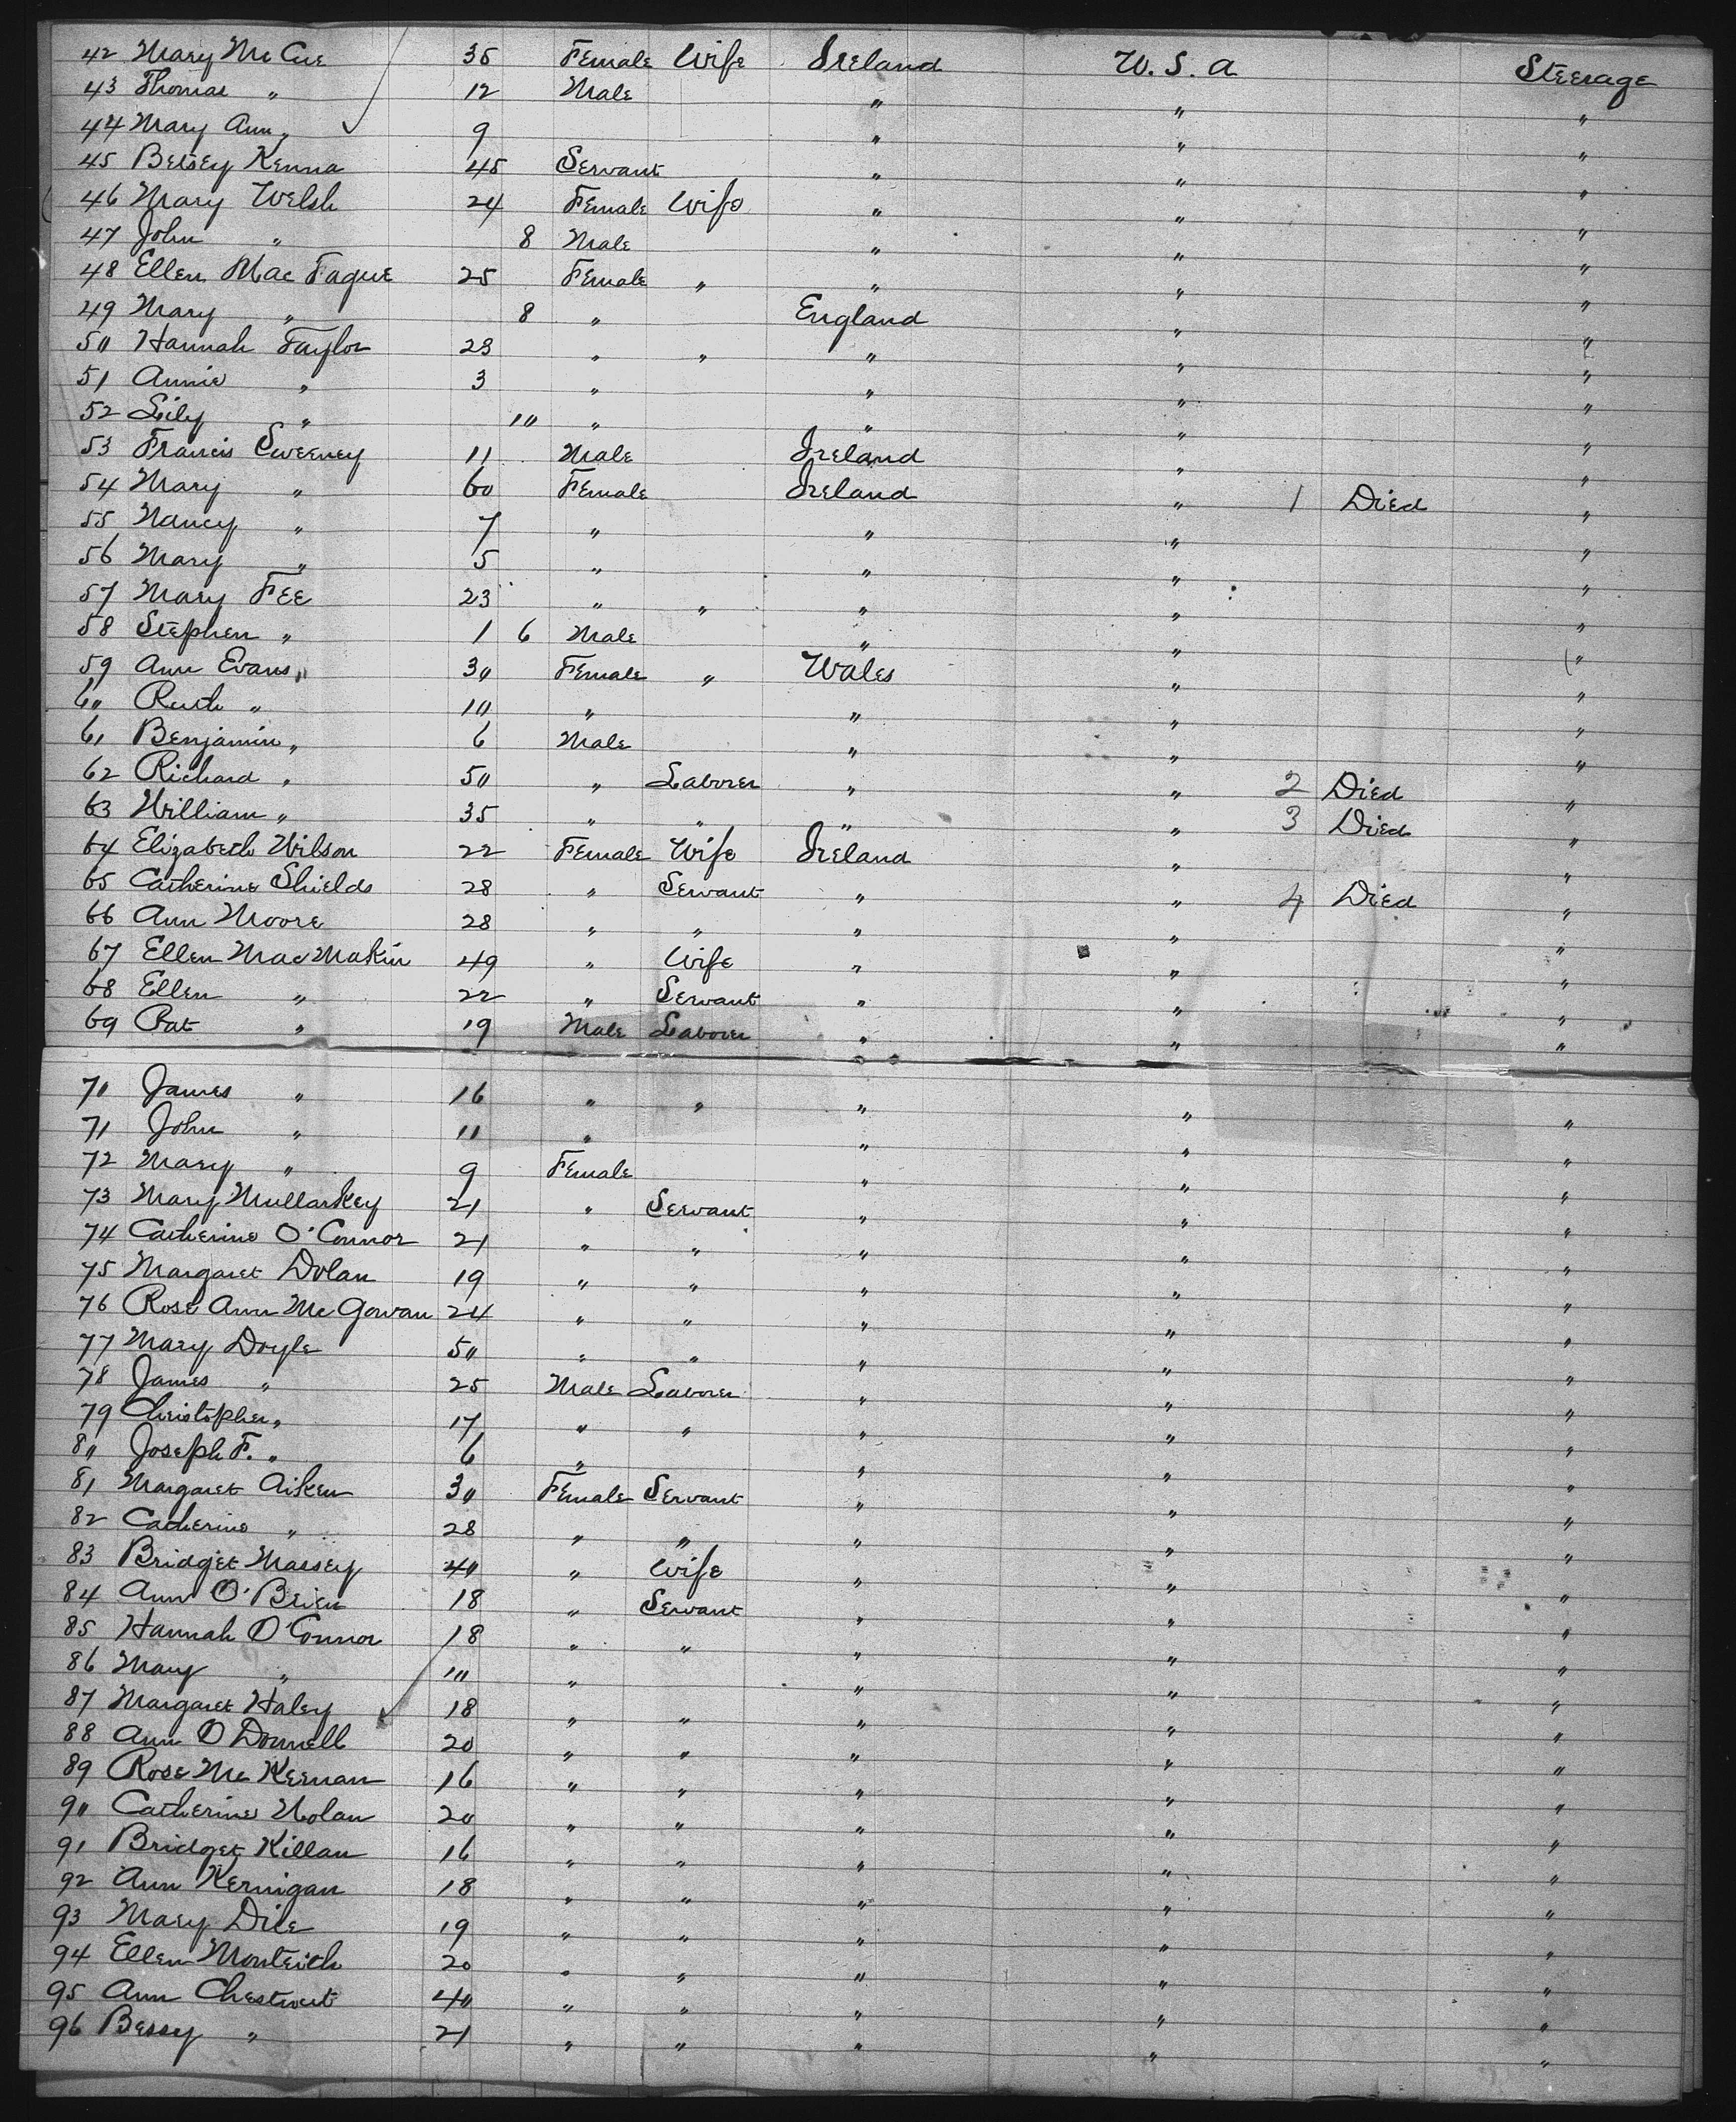 42 Mary Mc Cue 35 Female Wife Ireland U. S. a Steerage
43 Thomas " 12 Male " " "
44 Mary Ann " 9 " " "
45 Betsey Kenna 45 Servant " " "
46 Mary Welsh 24 Female Wife " " "
47 John " 8 Male " " "
48 Ellen Mac Tague 25 Female " " " "
49 Mary " 8 " England " "
50 Hannah Taylor 23 " " " " "
51 Annie " 3 " " " "
52 Lily " 10 " " " "
53 Francis Sweeney 11 Male Ireland " "
54 Mary " 60 Female Ireland " 1 Died "
55 Nancy " 7 " " " "
56 Mary " 5 " " " "
57 Mary Fee 23 " " " " "
58 Stephen " 1 6 Male " " "
59 Ann Evans " 30 Female " Wales " "
60 Ruth " 10 " " " "
61 Benjamin " 6 Male " " "
62 Richard " 50 " Laborer " " 2 Died "
63 William " 35 " " " " 3 Died "
64 Elizabeth Wilson 22 Female Wife Ireland " "
65 Catherine Shields 28 " Servant " " 4 Died "
66 Ann Moore 28 " " " " "
67 Ellen Mac Makin 49 " Wife " " "
68 Ellen " 22 " Servant " " "
69 Pat " 19 Male Laborer " " "
70 James " 16 " " " " "
71 John " 11 " " " "
72 Mary " 9 Female " " "
73 Mary Mullarkey 21 " Servant " " "
74 Catherine O'Connor 21 " " " " "
75 Margaret Dolan 19 " " " " "
76 Rose Ann Mc Gowan 24 " " " " "
77 Mary Doyle 50 " " " " "
78 James " 25 Male Laborer " " "
79 Christopher " 17 " " " " "
80 Joseph F. " 6 " " " "
81 Margaret Aiken 30 Female Servant " " "
82 Catherine " 28 " " " " "
83 Bridget Massey 40 " Wife " " "
84 Ann O'Brien 18 " Servant " " "
85 Hannah O'Connor 18 " " " " "
86 Mary " 10 " " " "
87 Margaret Haley 18 " " " " "
88 Ann O Donnell 20 " " " " "
89 Rose Mc Keenan 16 " " " " "
90 Catherine Nolan 20 " " " " "
91 Bridget Killan 16 " " " " "
92 Ann Kernigan 18 " " " " "
93 Mary Dice 19 " " " " "
94 Ellen Monteith 20 " " " " "
95 Ann Chestnut 40 " " " " "
96 Bessy " 21 " " " " "